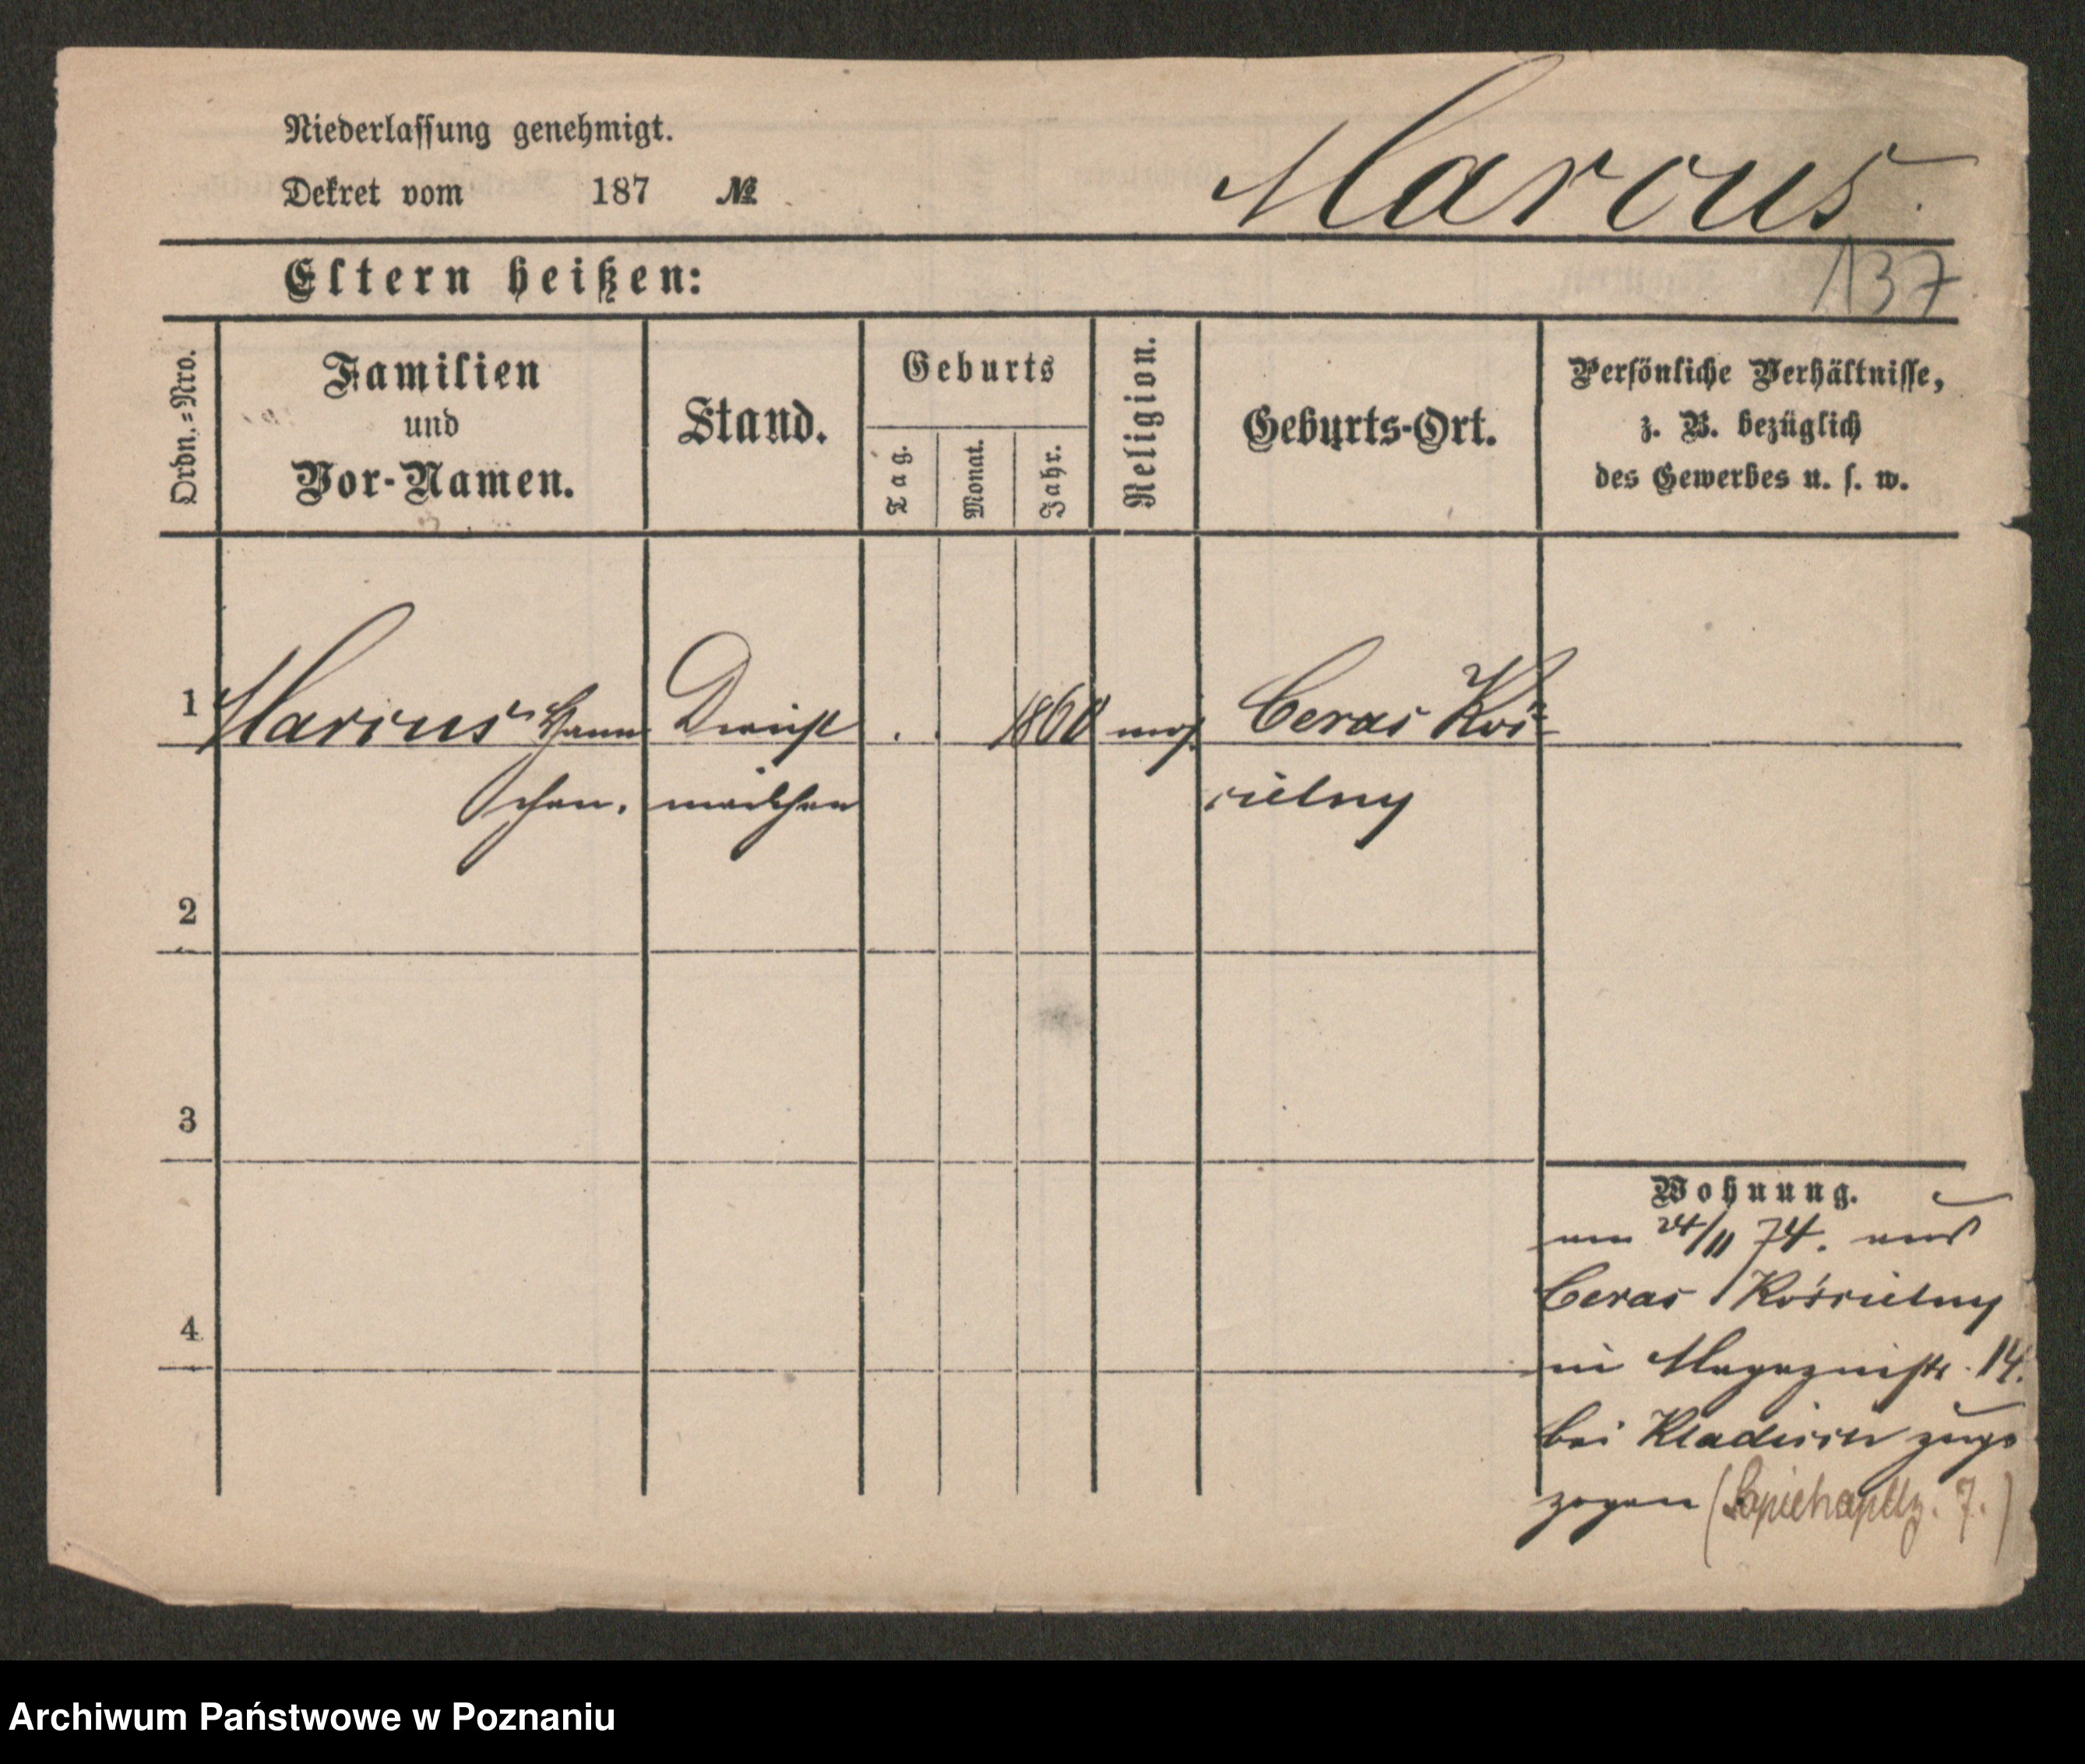 Niederlassung genehmigt.
Dekret vom 187 №
Marcus.
Eltern heißen:
137
Ordn.=Nro.
Familien
und
Vor-Namen.
Stand.
Geburts
Tag.
Monat.
Jahr.
Religion.
Geburts-Ort.
Persönliche Verhältnisse,
z. B. bezüglich
des Gewerbes u. s. w.
1 Marcus Hann Dienst . . 1860 mos. Ceras Koś-
chen. mädchen cielny
2
3
4
Wohnung.
am 24/11 74. aus
Ceras Kościelny
in Magazinstr. 14.
bei zuge
zogen (Sapiehapltz. 7.)
Archiwum Państwowe w Poznaniu